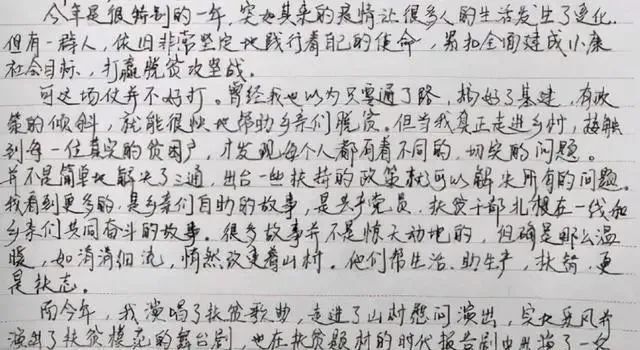 今年是很特别的一年,突如其来的疫情让很多人的生活发生了变化,
但有一群人,依旧非常坚定地践行着自己的使命,紧扣全面建成小康
社会目标,打赢脱贫攻坚战。
可这场仗并不好打。曾经我也以为只要通了路,搞好了基建,有政
策的倾斜,就能很快地帮助乡亲们脱贫。但当我真正走进乡村,接触
到每一位真实的贫困户,才发现每个人都有着不同的,切实的问题。
并不是简单地解决了三通,出台一些扶持的政策就可以解决所有的问题。
我看到更多的,是乡亲们自助的故事,是共产党员、扶贫干部扎根在一线和
乡亲们共同奋斗的故事。很多故事并不是惊天动地的,但确是那么温
暖,如涓涓细流,悄然改变着山村。他们帮生活、助生产,扶智、更
是扶志。
而今年,我演唱了扶贫歌曲,走进了山村慰问演出,实地采风并
演出了扶贫模范的舞台剧,也在扶贫题材的时代报告剧中出演了一名